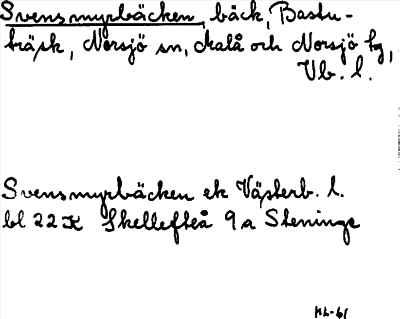 Svensmyrbäcken, bäck, Bastu-
träsk, Norsjö sn, Malå och Norsjö tg,
Vb. l.
Svensmyrbäcken ek Västerb. l.
bl 22 K Skellefteå 9 a Steninge